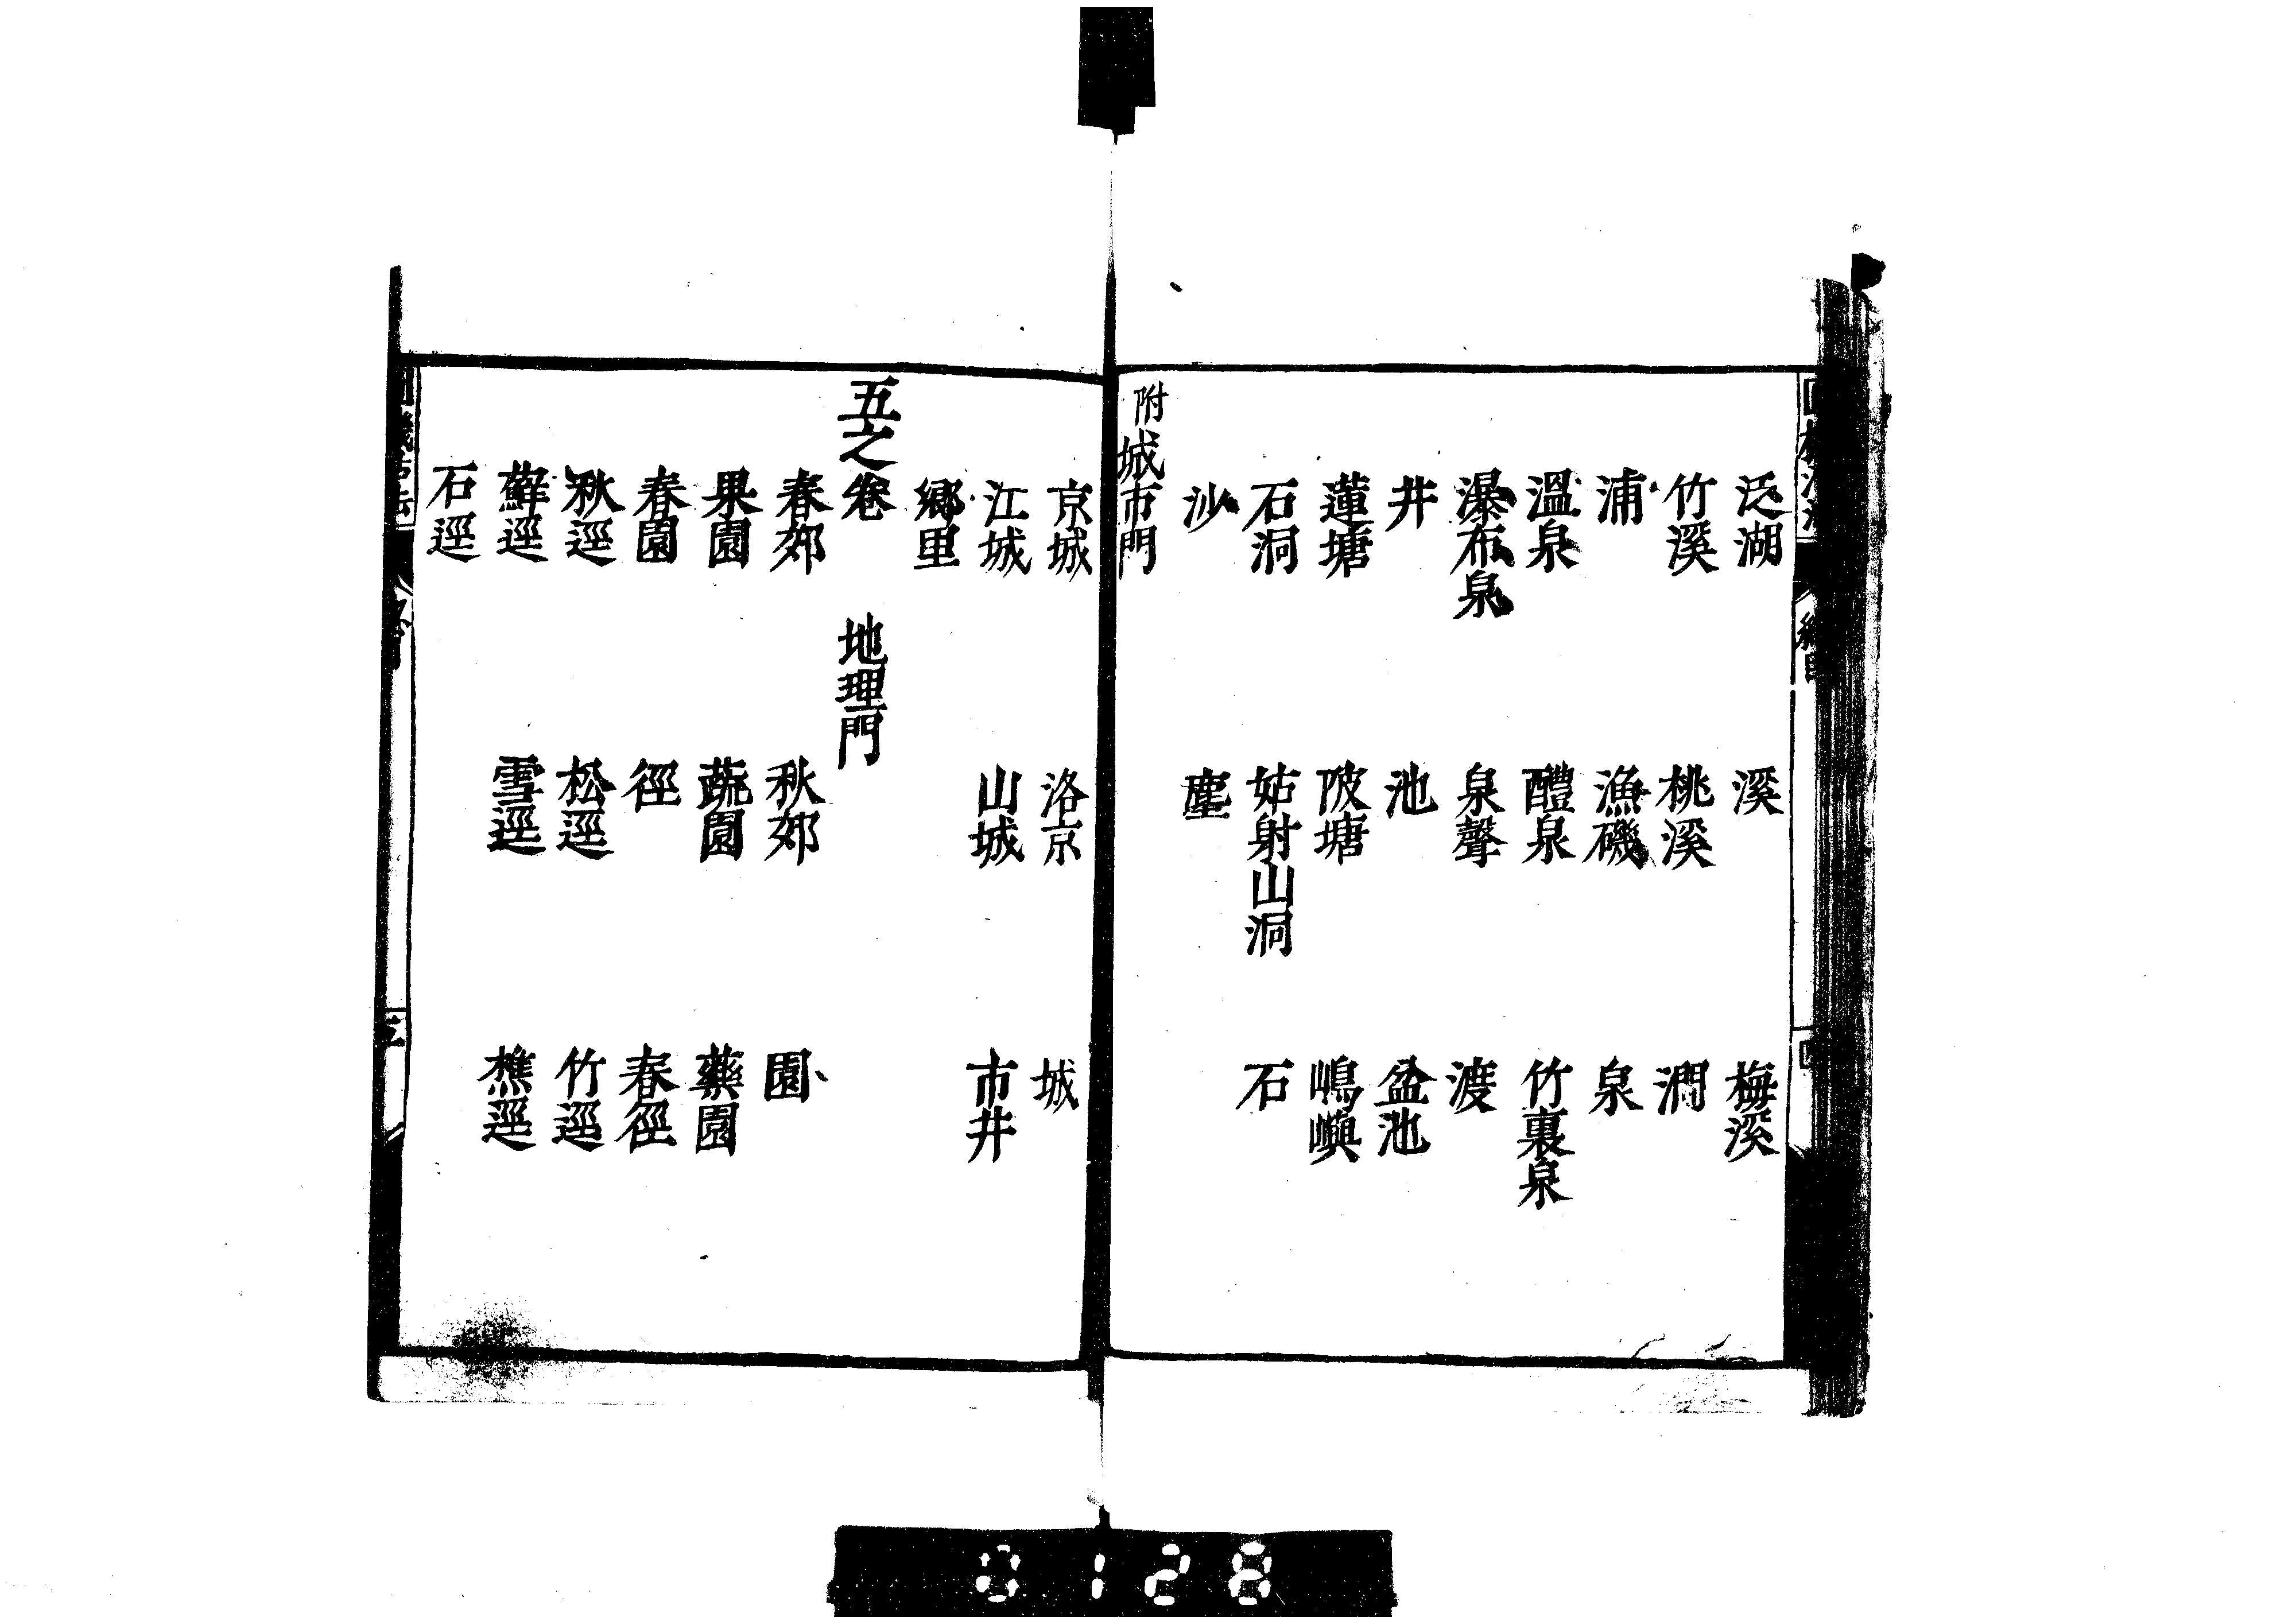 泛湖 溪 梅溪
竹溪 桃溪 澗
浦 漁磯 泉
溫泉 醴泉 竹裏泉
瀑布泉 泉聲 渡
井 池 盆池
蓮塘 陂塘 嶋嶼
石洞 姑射山洞 石
沙 塵
附城市門
京城 洛京 城
江城 山城 市井
鄉里
五之卷 地理門
春郊 秋郊 園
果園 蔬園 藥園
春園 徑 春徑
秋逕 松逕 竹逕
蘚逕 雪逕 樵逕
石逕
0128